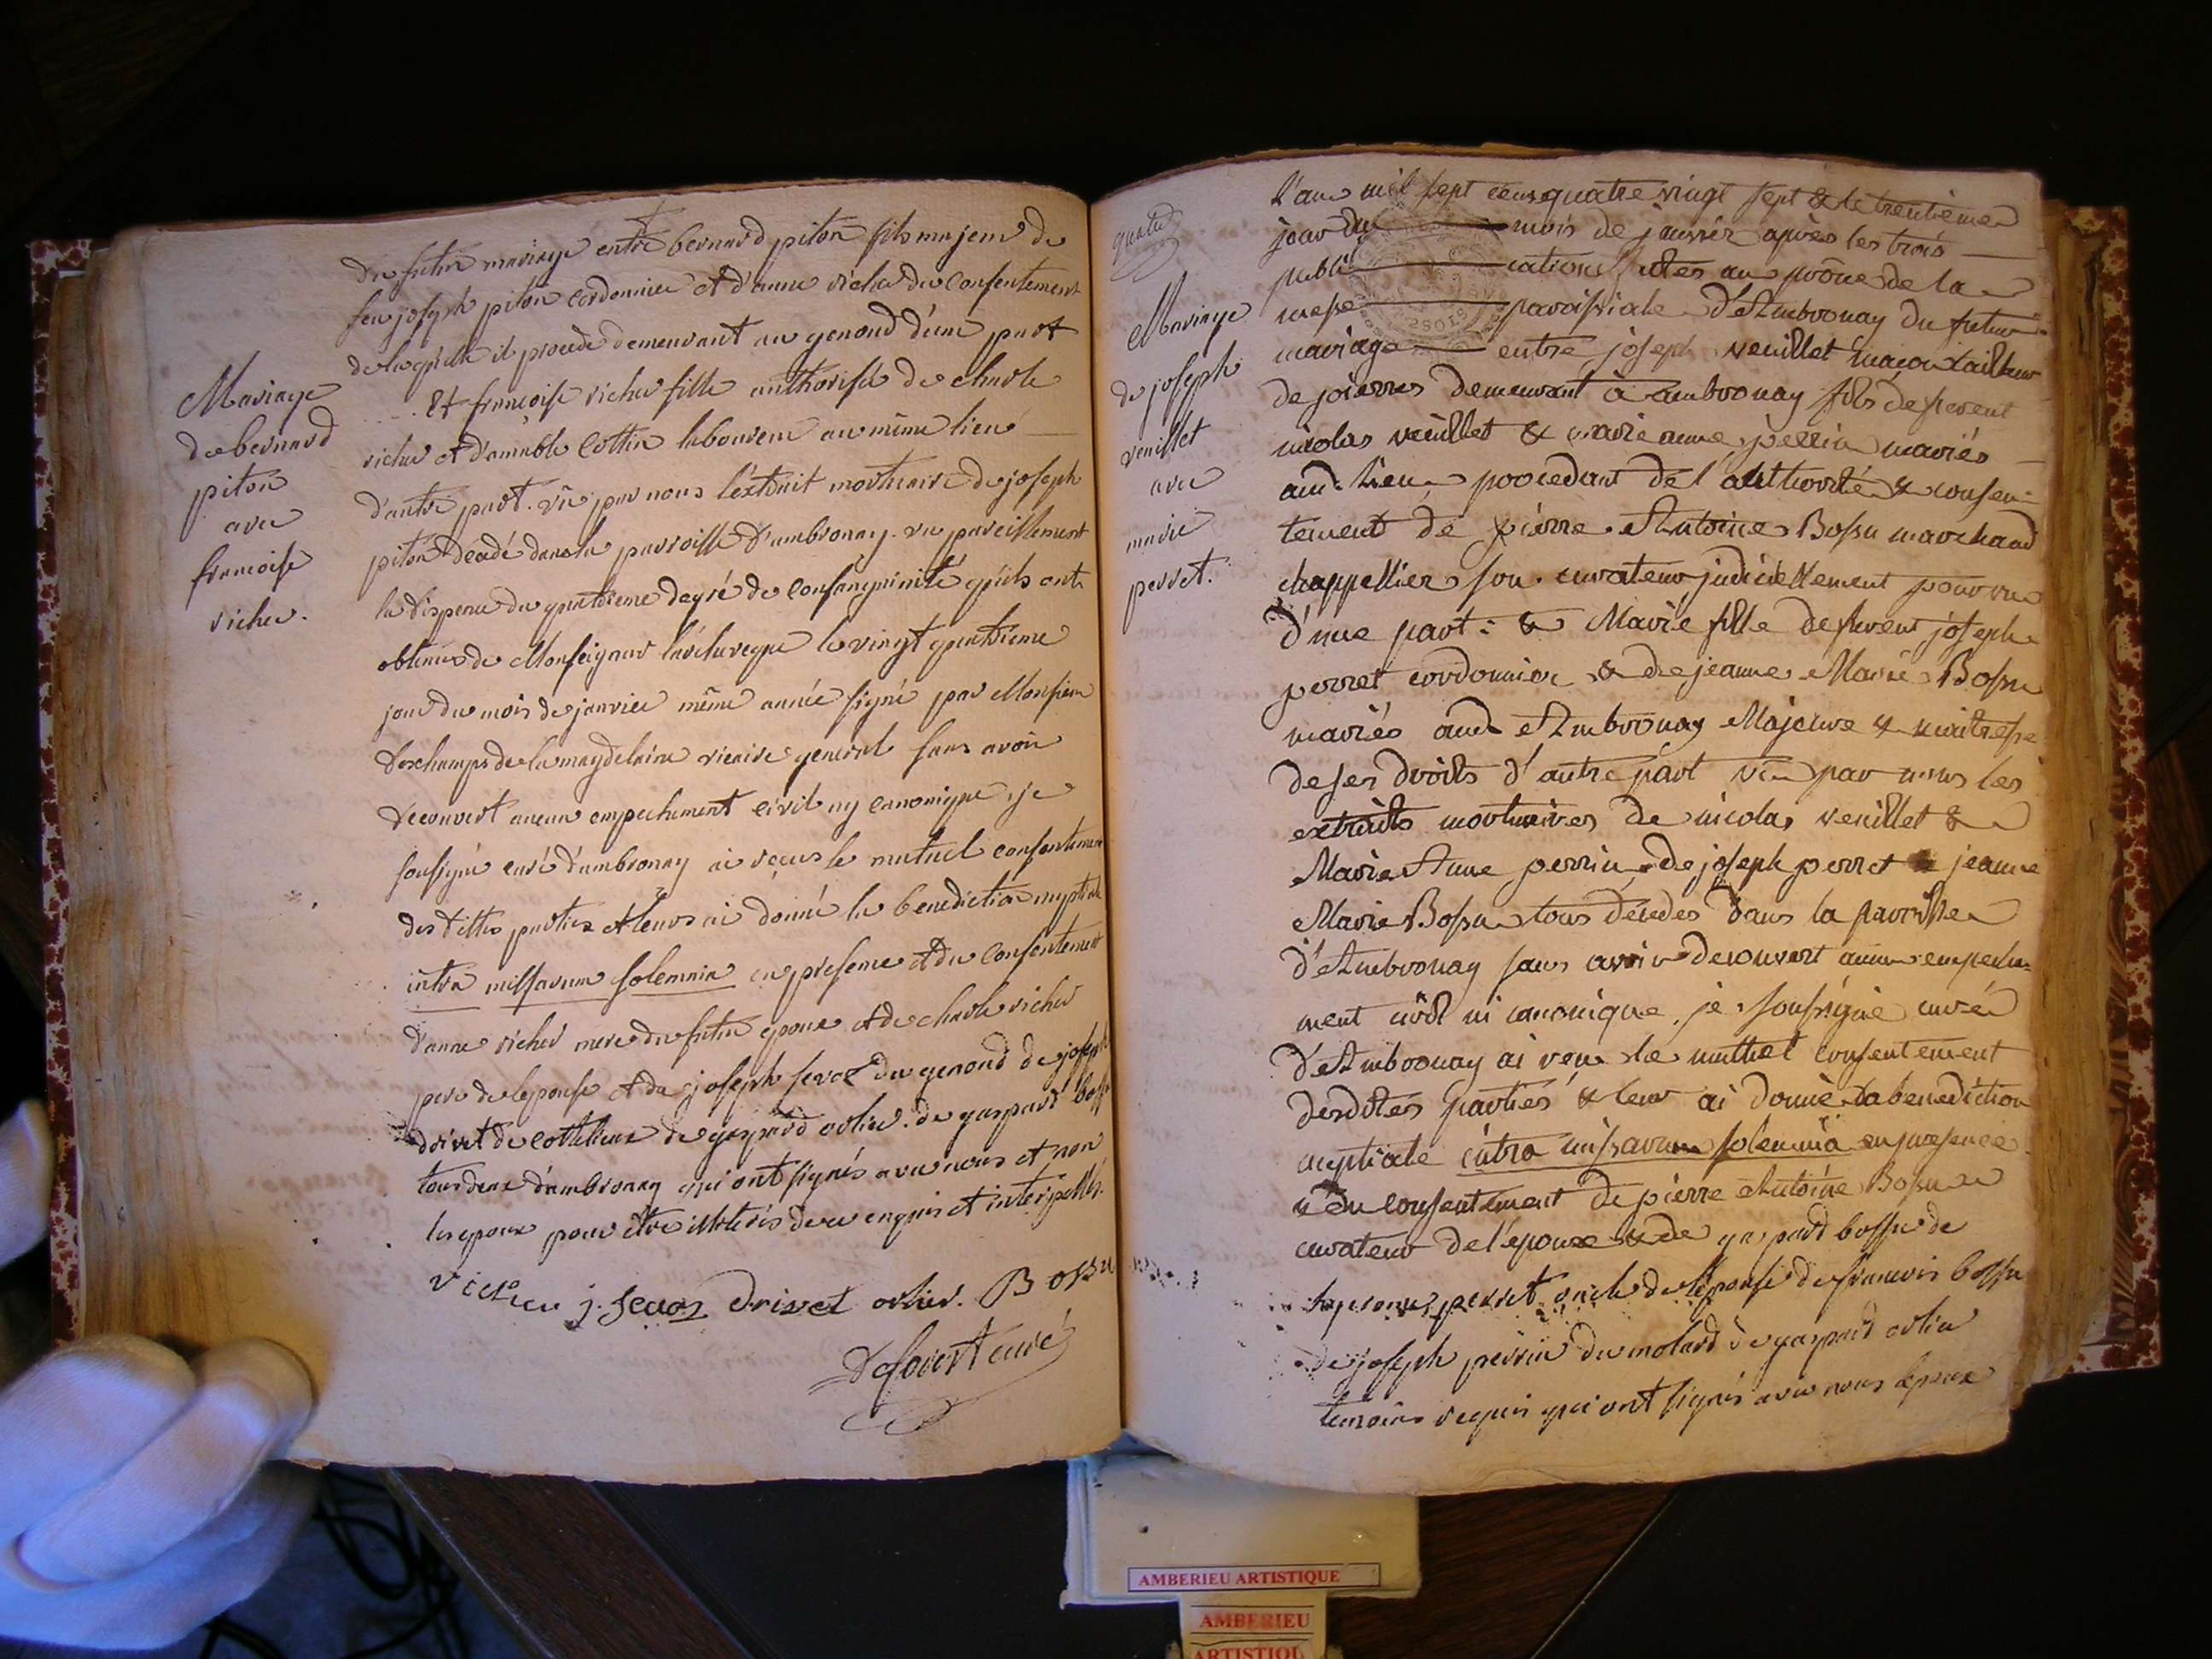 Mariage
de bernard
piton
avec
francoise
richer.
du futur mariage entre bernard piton fils majeur de
feu joseph piton cordonnier et d'anne richer du consentement
de laquelle il procede demeurant au genoud d'une part
Et francoise richer fille authorisée de charle
richer et d'amable Cottin laboureur au même lieu
d'autre part. vû par nous l'extrait mortuaire de joseph
piton décedé dans la parroisse d'ambronay. vu pareillement
la dispense du quatrieme degré de consanguinité qu'ils ont
obtenue de Monseigneur l'archeveque le vingt quatrieme
jour du mois de janvier même année signé par Monsieur
Deschamps de la magdelaine vicaire general sans avoir
decouvert aucun empechement civil ny canonique, je
soussigné curé d'ambronay ai reçus le mutuel consentement
des dittes parties et leurs ai donné la benediction nuptiale
intra missarum solemnia en presence et du consentement
d'anne richer mere du futur epoux et de charle richer
pere de lepouse et de joseph sevoz du genoud de joseph
drivet de cottelieux de gaspard orlier. de gaspard boss
tous deux d'ambronay qui ont signés avec nous et non
les epoux pour etre illiterés de ce enquis et interpellés.
richer j. sevoz Drivet orlier. Bossu
curé
quatre
Mariage
de joseph
veuillet
avec
marie
perret.
L'an mil sept cens quatre vingt sept & le trentieme
jour du mois de janvier après les trois
publications faites au prône de la
messe paroissiale d'Ambronay du futur
mariage entre joseph veuillet maçon tailleur
de pierres demeurant à ambronay fils de
nicolas veuillet & marie anne perrin mariés
aud. lieu procedant de l'authorité & consen-
tement de pierre Antoine Bossu marchand
chappellier son curateur judiciellement pourvu
d'une part: & Marie fille de joseph
perret cordonnier & de jeanne Marie Bossu
mariés aud Ambronay Majeure & maitresse
de ses droits d'autre part vû par nous les
extraits mortuaires de nicolas veuillet &
Marie Anne perrin de joseph perret & jeanne
Marie Bossu tous décedés dans la parroisse
d'Ambronay sans avoir decouvert aucun empeche-
ment civil ni canonique, je soussigné curé
d'Ambronay ai reçu le muthuel consentement
desdites parties & leur ai donné la benediction
nuptiale intra missarum solemnia en presence
& du consentement de pierre Antoine Bossu
curateur de l'epoux & de gaspard bossu de
perret oncle de l'epouse de francois bossu
de joseph perrin du molard de gaspard orlier
temoins requis qui ont signés avec nous lepoux
2 SOLS
AMBERIEU ARTISTIQUE
AMBERIEU
ARTISTIQU